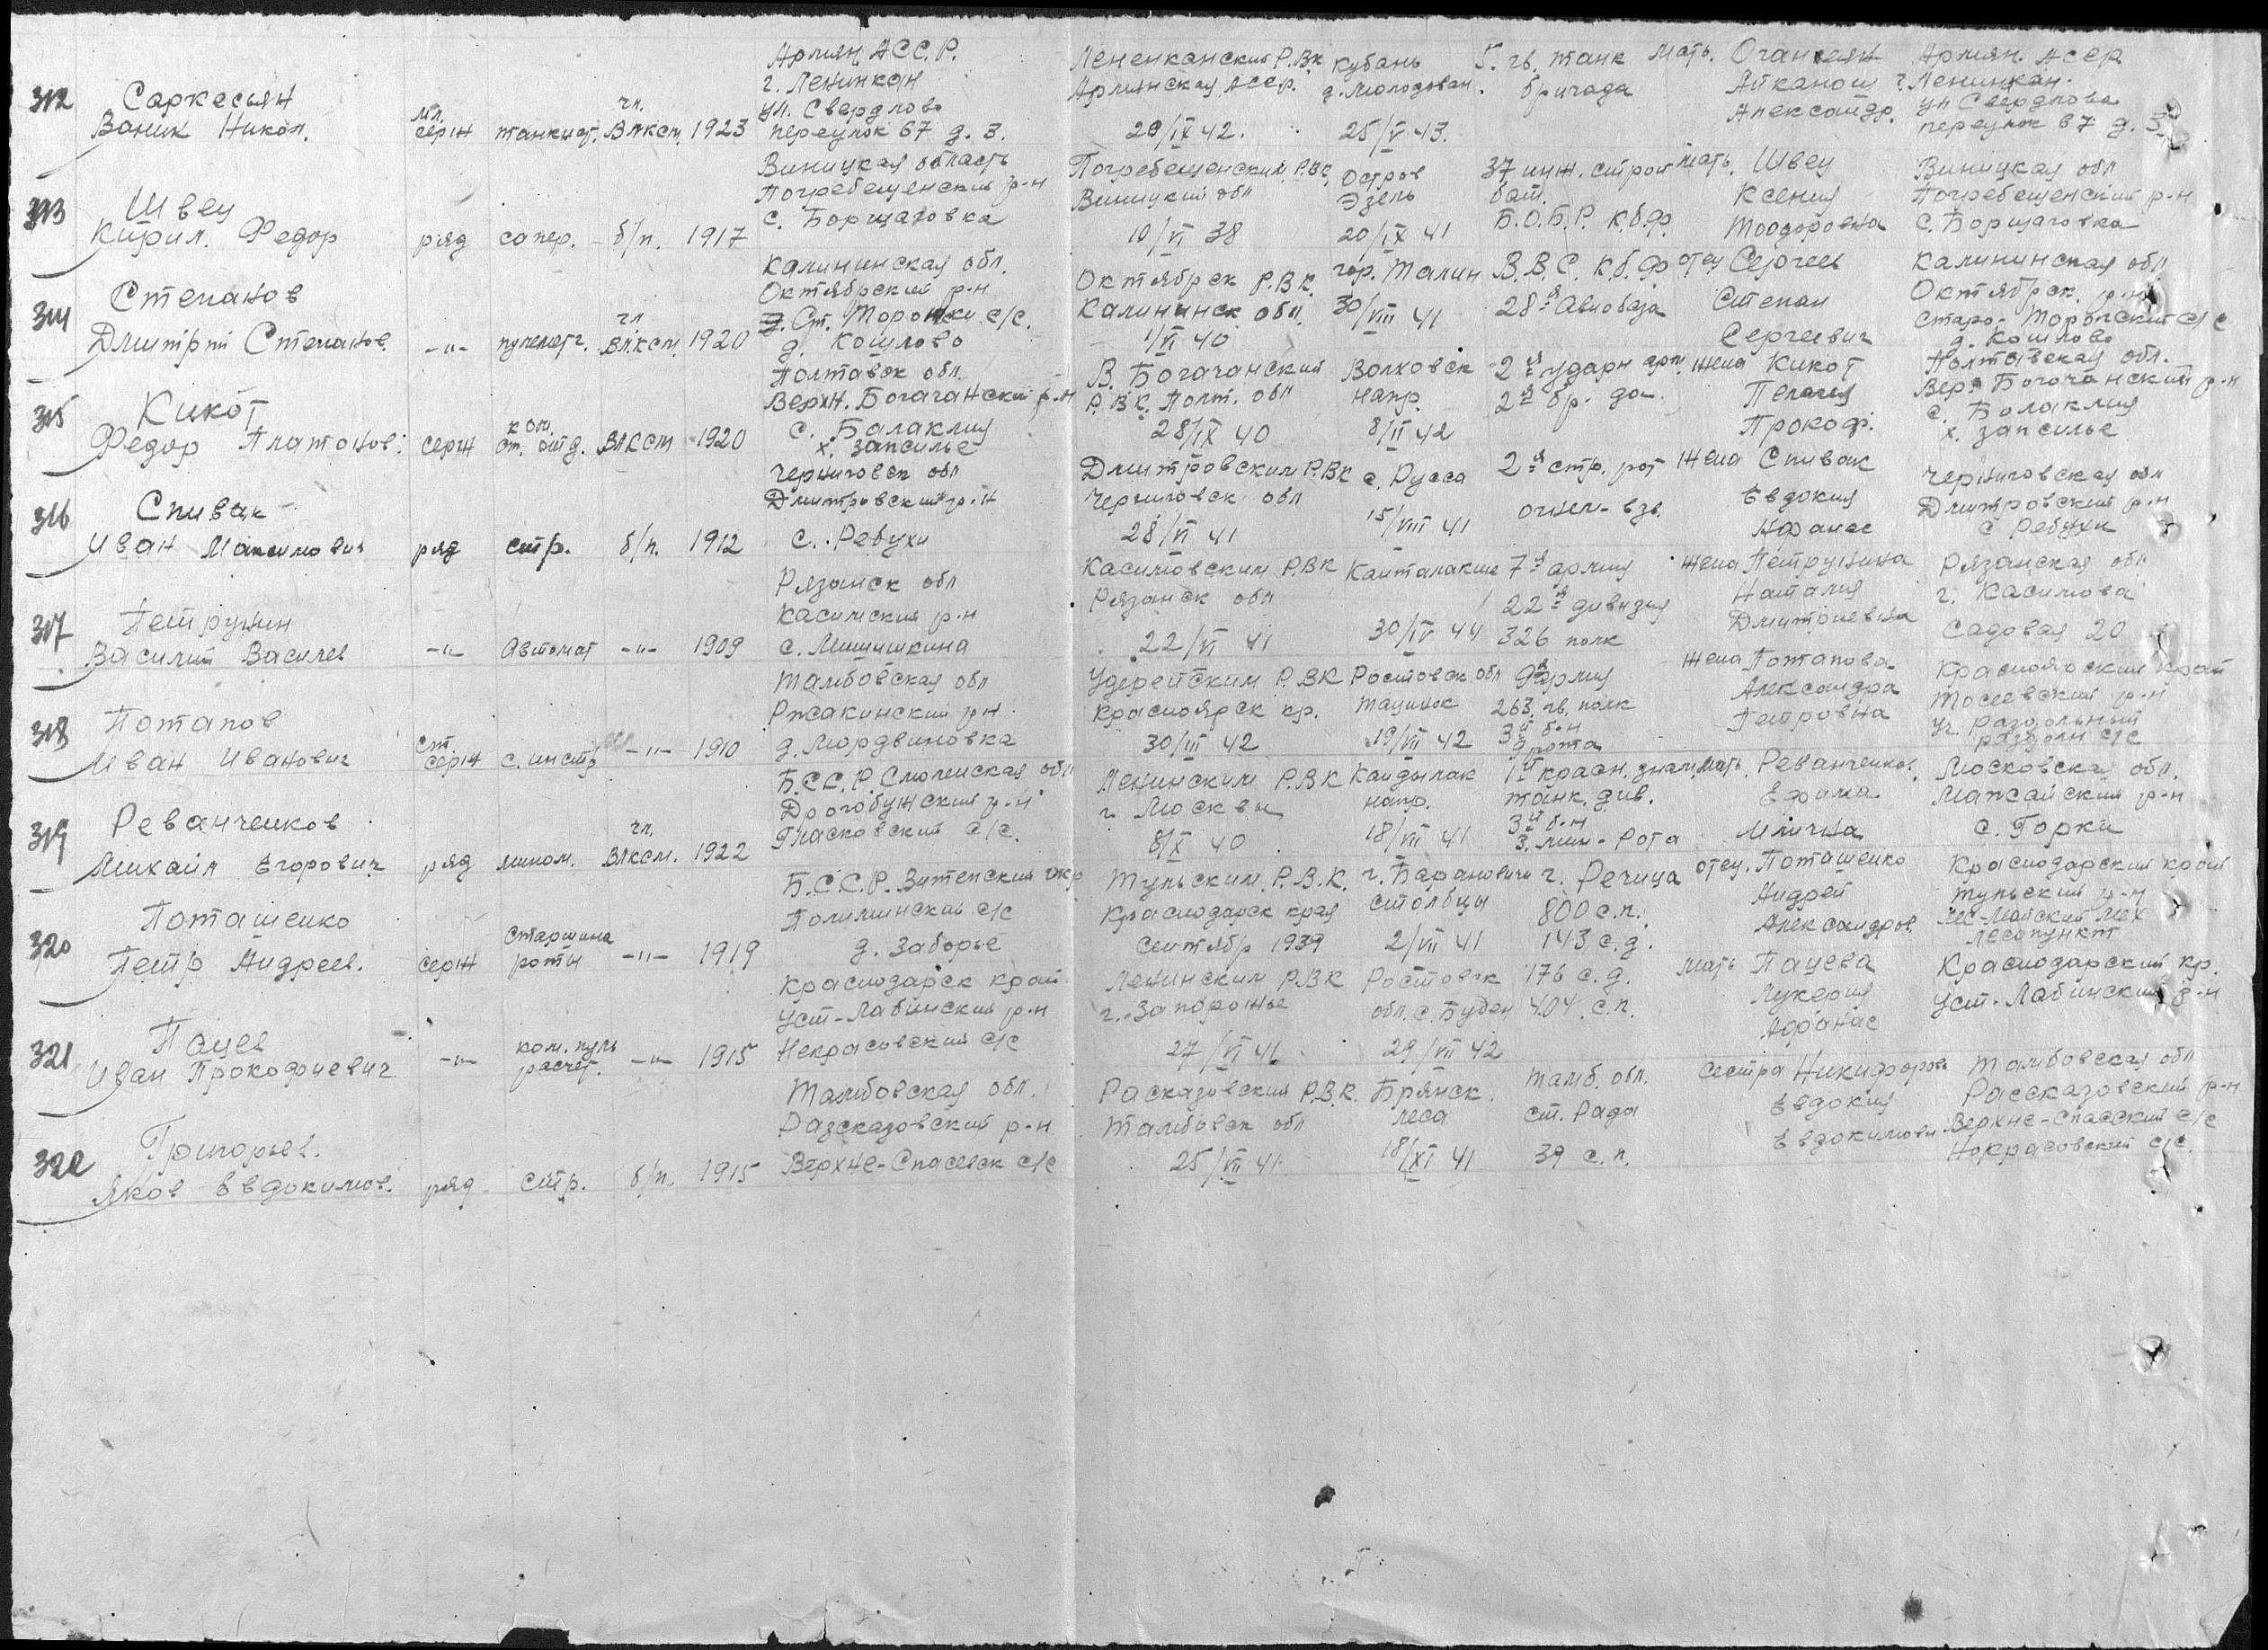 312 Саркесьян
Ваник Никол.
мл. серж
танкист.
чл. ВЛКСМ.
1923
Армян. АССР.
г. Ленинкан
ул. Свердлова
переулок 67 д. 3.
Лененканский Р.Вк
Армянская АССР.
20/IX 42.
Кубань
д. Молодован.
25/V 43.
5. гв. танк
бригада
Мать. Оганесян
Айканош
Александр.
Армян. АССР
г. Ленинкан.
ул Свердлова
переулок 67 д. 3
313 Швец
Кирил. Федор
ряд
сапер.
б/п.
1917
Виницкая область
Погребещенский р-н
с. Борщаговка
Погребещенский Р.Вк
Виницкий обл
10/VI 38
Остров
Эзель
20/IX 41
37 инж. строй
бат.
Б.О.Б.Р. К.б.ф.
Мать. Швец
Ксения
Тодоровна
Виницкая обл
Погребещенский р-н
с. Борщаговка
314 Степанов
Дмитрий Степанов.
-"-
пулеметч.
чл ВЛКСМ.
1920
Калининская обл.
Октябрский р-н
Ст. Торопки с/с.
д. Кошлово
Октябрск Р.ВК.
Калининск обл.
1/VI 40
гор. Талин
30/VIII 41
В.В.С. К.б.ф
28-я Авиобаза
отец Сергеев
Степан
Сергеевич
Калининская обл
Октябрск. р-н
Старо-Торопский с/с
д. Кошлово
315 Кикот
Федор Платонов.
серж
ком. ст. отд.
ВЛКСМ
1920
Полтавск обл.
Верхн. Богачански р-н
с. Балаклия
х. Запсилье
В. Богачанский
Р.ВК. Полт. обл
28/IX 40
Волховск
напр.
8/II 42
2-я ударн арм.
2-я бр.
жена Кикот
Пелагея
Прокоф.
Полтавская обл.
Верх Богочанский р-н
с. Балаклия
х. Запсилье
316 Спивак
Иван Максимович
ряд
стр.
б/п.
1912
Черниговск обл
Дмитровский р-н
с. Ревухи
Дмитровским Р.Вк
Черниговск обл
28/VI 41
с. Русса
15/VIII 41
2-я стр. рот
огнем-взв.
Жена Спивак
Евдокия
Афанас
Черниговская обл
Дмитровский р-н
с Ребухи
317 Петрунин
Василий Василев
-"-
Автомат
-"-
1909
Рязанск обл
Касимский р-н
с. Мишишкина
Касимовским РВК
Рязанск обл
22/VI 41
Канталакше
30/IV 44
7-я армия
22-я дивизия
326 полк
жена Петрунина
Наталия
Дмитриевна
Рязанская обл
г. Касимова
Садовая 20
318 Потапов
Иван Иванович
ст серж
с. инстр
-"-
1910
Тамбовская обл
Ржакинский р-н.
д. Мордвиновка
Удерейским Р.ВК
Красноярск кр.
30/III 42
Ростовск обл
Тацинск
19/VII 42
9я армия
263 гв. полк
3й б-н
9 рота
жена Потапова
Александра
Петровна
Красноярский край
Тосеевский р-н
уч. раздольный
раздолн с/с
319 Реванченков
Михаил Егорович
ряд
мином.
чл. ВЛКСМ.
1922
Б.С.С.Р. Смоленская обл
Дорогобужский р-н
Гласковский с/с.
Ленинским Р.ВК
г. Москвы
8/X 40
Кандылак
напр.
18/VII 41
1й красн. знам.
танк. див.
3й б-н
3. мин-рота
Мать. Реванченков.
Ефима
Илична
Московская обл.
Мажайский р-н
с. Горки
320 Поташенко
Петр Андреев.
серж
старшина роты
-"-
1919
Б.С.С.Р. Витепский окр
Полиминский с/с
д. Заборье
Тульским. Р.В.К.
Краснодарск края
сентябр 1939
г. Барановичи
столбцы
2/VII 41
г. Речица
800 с.п.
143 с.д.
отец. Поташенко
Андрей
Александров.
Краснодарский край
тульский р-н
лесопункт
321 Пацев
Иван Прокофиевич
-"-
ком. пуль расчет.
-"-
1915
Краснодарск край
Уст-Лабинский р-н
Некрасовский с/с
Ленинским РВК
г. Запорожье
27/VI 41
Ростовск
обл. с. Буден
29/VII 42
176 с.д.
404. с.п.
мать Пацева
Лукерия
Афанас
Краснодарский кр.
Уст-Лабинский р-н
322 Григорьев.
Яков Евдокимов.
ряд
стр.
б/п.
1915
Тамбовская обл.
Разсказовский р-н
Верхне-Спасевск с/с
Расказовским Р.В.К.
Тамбовск обл
25/VII 41
Брянск.
леса
18/XI 41
Тамб. обл.
ст. Рада
39 с.п.
Сестра Никифорова
Евдокия
Евдокимовн
Тамбовская обл
Рассказовский р-н
Верхне-Спасский с/с
Нокрасовский с/с.